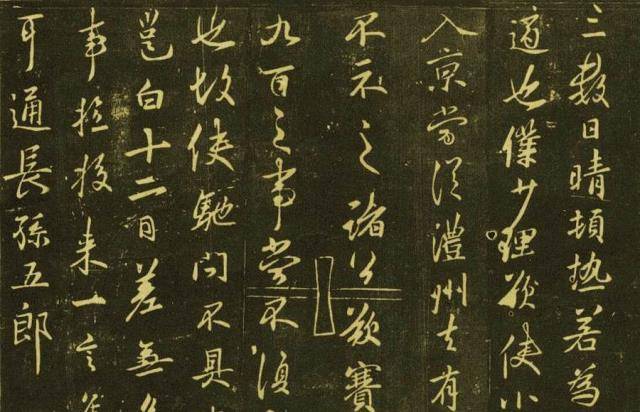 三數日晴頓熱若為
適也僕少理欲使小
入京當從澧州去有
不示之諸公欲賽
九百之事當不須
也故使馳問不具
邕白十二日差無
事拉拔来一言
耳通長孫五郎